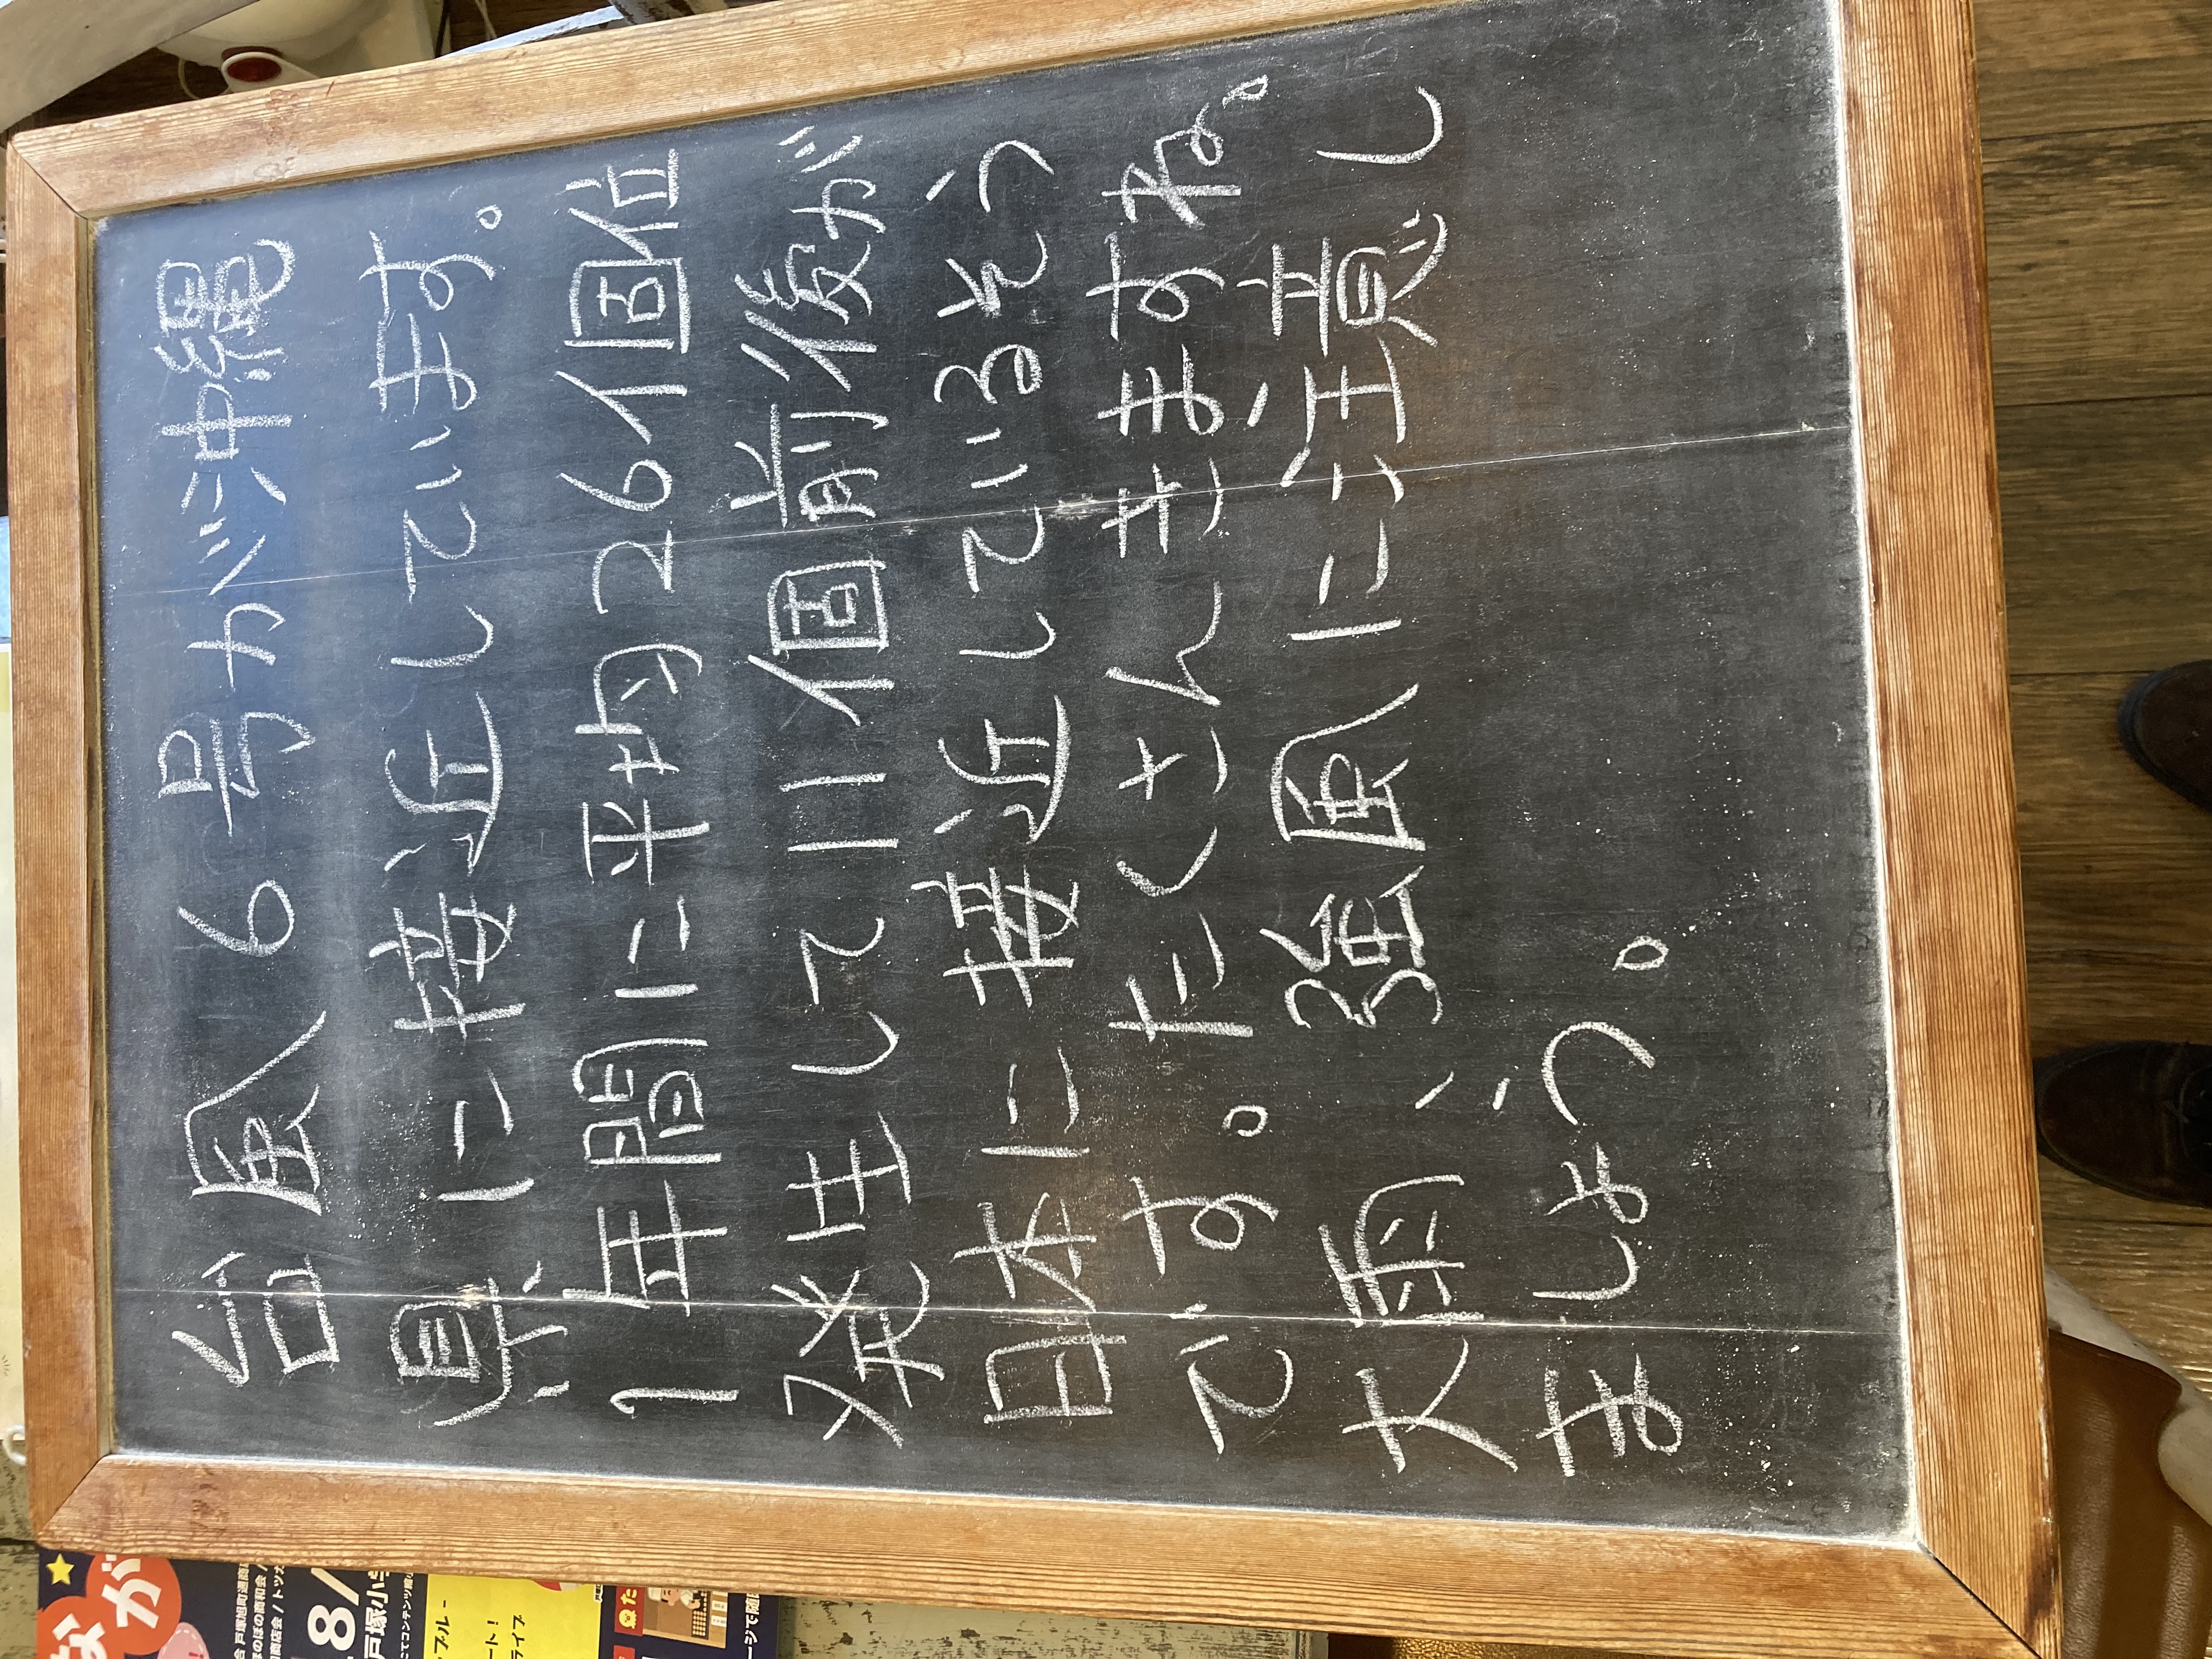 台風6号が沖縄
県に接近しています。
1年間に平均26個位
発生して11個前後が
日本に接近しているそう
です。たくさんきますね。
大雨、強風に注意し
ましょう。
なが
8/
戸塚小
ブルー
ート!
ライブ